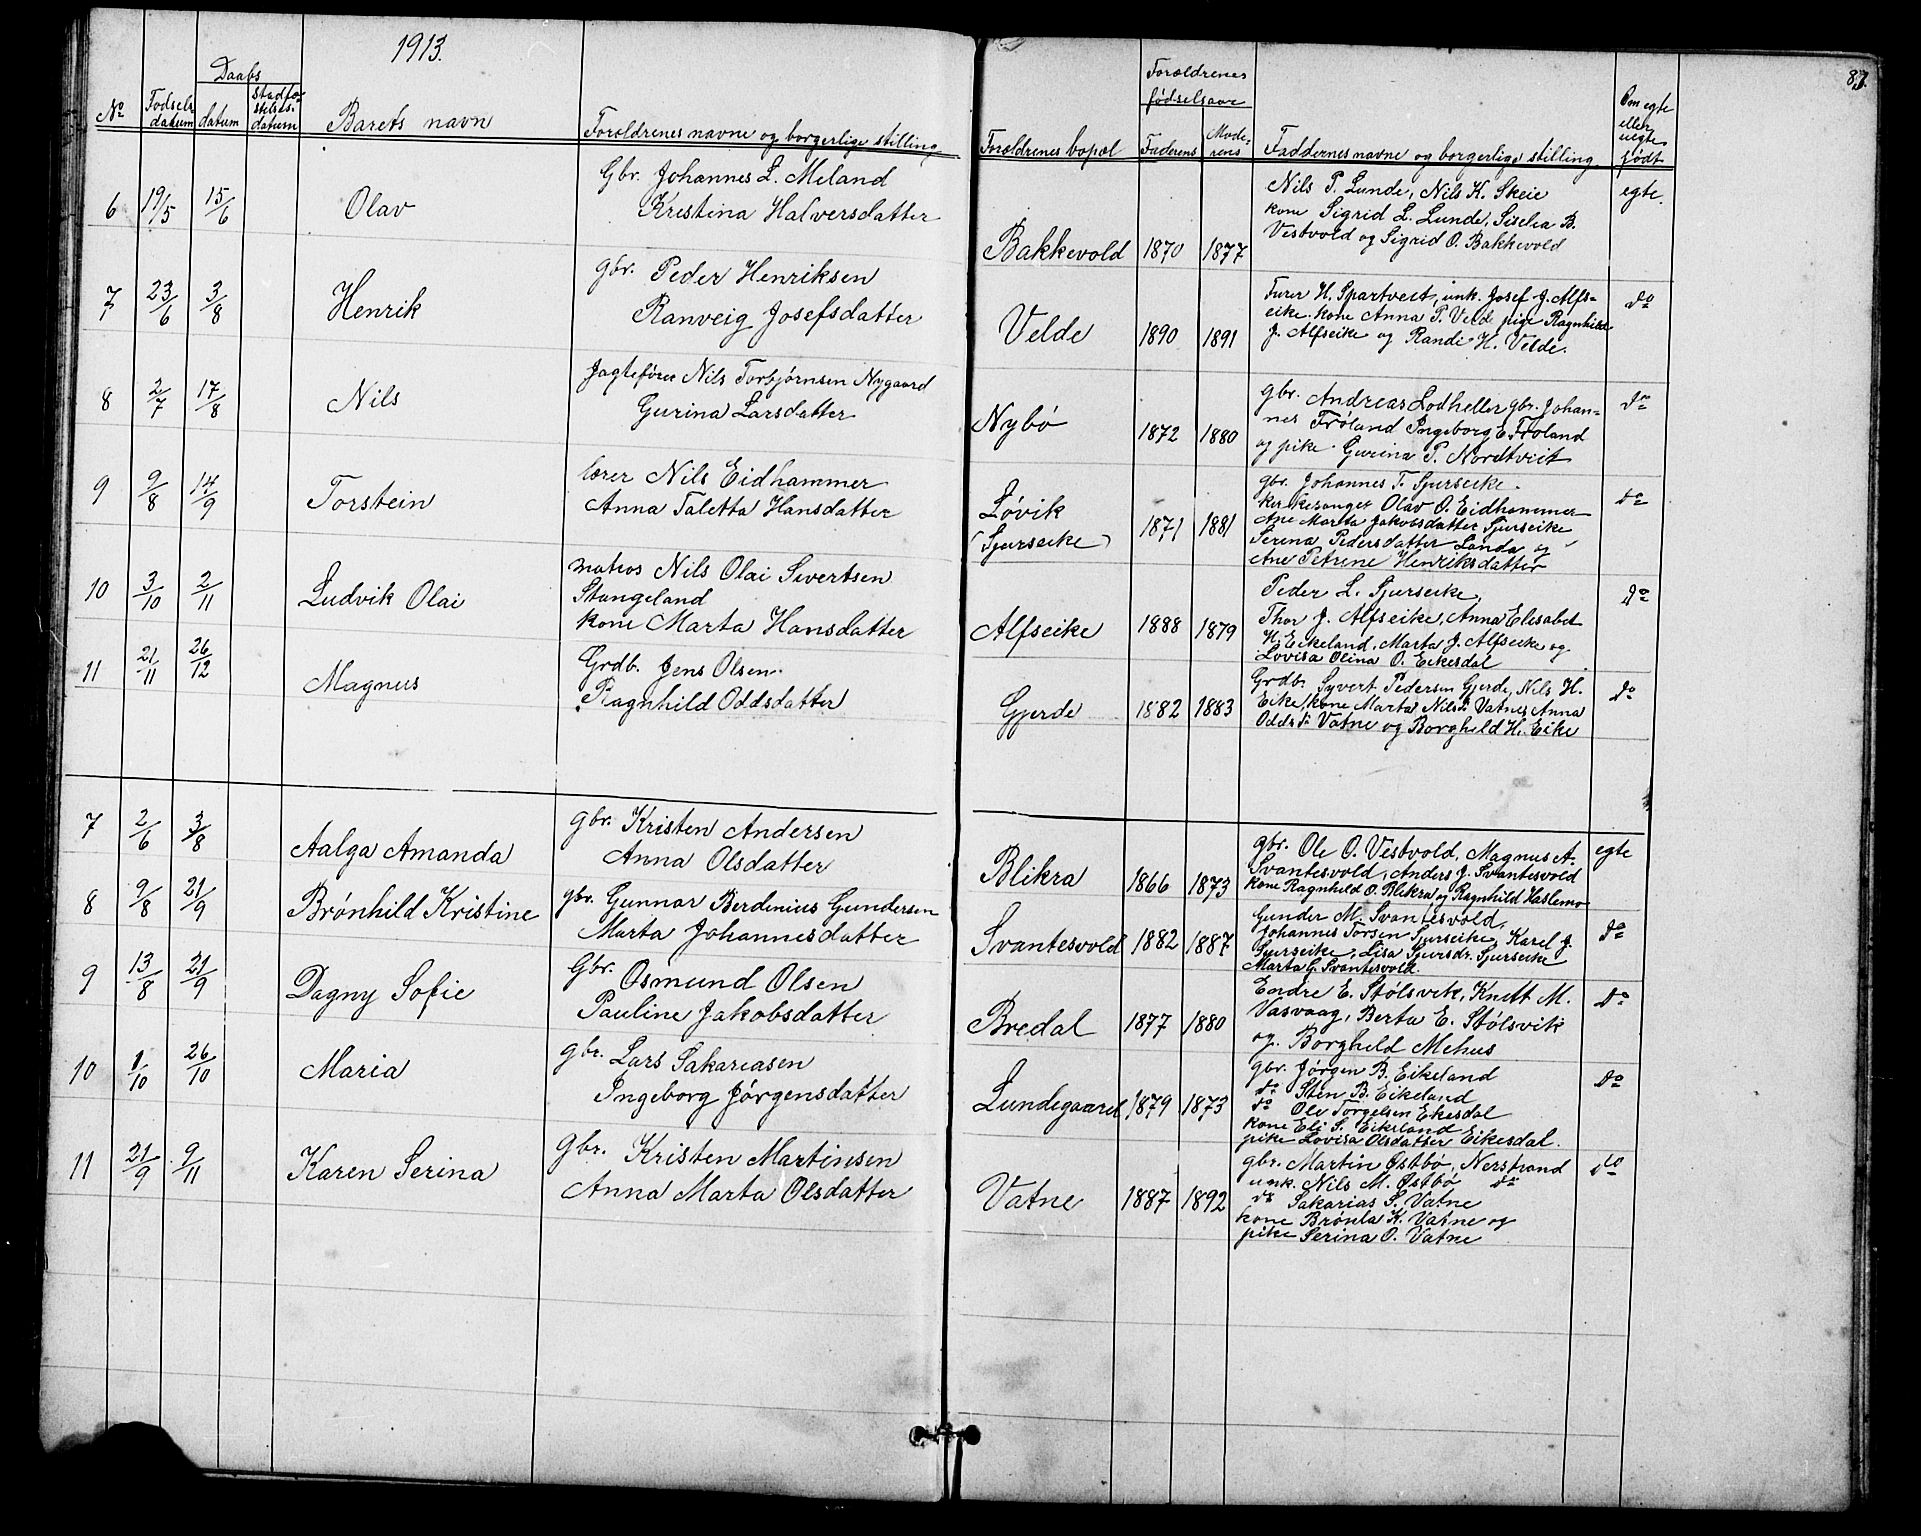 1913.
87.
Daabs
Forældrenes
fødselsaar
No
Fødsels
datum
datum
stadfæ-
stelses-
datum
Barets navn
Forældrenes navne og borgerlige stilling
Forældrenes bopæl
Faderens
Mode-
rens
Faddernes navne og borgerlige stilling
Om egte
eller
uegte
født
6 19/5 15/6 Olav
Gbr. Johannes L. Meland
Kristina Halversdatter
Bakkevold 1870 1877
Nils P. Lunde, Nils K. Skeie
kone Sigrid L. Lunde, Siselia B.
Vestvold og Sigrid O. Bakkevold
egte.
7 23/6 3/8 Henrik
gbr. Peder Henriksen
Ranveig Josefsdatter
Velde 1890 1891
H. Spartveit, unk. Josef J. Alfs-
eike. kone Anna P. Velde pige Ragnhild
J. Alfseike og Randi H. Velde.
do
8 2/7 17/8 Nils
Jagtefører Nils Torbjørnsen Nygaard
Gurina Larsdatter
Nybø 1872 1880
gbr. Andreas Lodheller gbr. Johan-
nes Frøland Ingeborg E. Frøland
og pike Gurina P. Nordtveit
do
9 9/8 14/9 Torstein
lærer Nils Eidhammer
Anna Taletta Hansdatter
Løvik
(Sjurseike) 1871 1881
gbr. Johannes T. Sjurseike.
kirkesanger Olav O. Eidhammer
Ane Marta Jakobsdatter Sjurseike
Serina Pedersdatter Landa og
Ane Petrine Henriksdatter
do
10 3/10 2/11 Ludvik Olai
matros Nils Olai Sivertsen
Stangeland
kone Marta Hansdatter
Alfseike 1888 1879
Peder L. Sjurseike,
Thor J. Alfseike, Anna Elisabet
H. Eikeland, Marta J. Alfseike og
Lovisa Olina O. Eikesdal
do
11 21/11 26/12 Magnus
Grdb. Jens Olsen.
Ragnhild Oddsdatter
Gjerde 1882 1883
Grdb. Syvert Pedersen Gjerde, Nils H.
Eike, kone Marta Nilsd. Vatne, Anna
Oddsd. Vatne og Borghild H. Eike
do
7 2/6 3/8 Aalga Amanda
gbr. Kristen Andersen
Anna Olsdatter
Blikra 1866 1873
gbr. Ole O. Vestvold, Magnus A.
Svantesvold, Anders J. Svantesvold
kone Ragnhild O. Blikra og Ragnhild Haslemo
egte
8 9/8 21/9 Brønhild Kristine
gbr. Gunnar Berdinius Gundersen
Marta Johannesdatter
Svantesvold 1882 1887
Gunder M. Svantesvold,
Johannes Torsen Sjurseike, Karel J.
Sjurseike, Lisa Sjursdr. Sjurseike
Marta G. Svantesvold.
do
9 13/8 21/9 Dagny Sofie
Gbr. Osmund Olsen
Pauline Jakobsdatter
Bredal 1877 1880
Endre E. Stølsvik, Knut M.
Vasvaag, Berta E. Stølsvik
og. Borghild Mehus
do
10 1/10 26/10 Maria
gbr. Lars Sakariasen
Ingeborg Jørgensdatter
Lundegaard 1879 1873
gbr. Jørgen B. Eikeland
do Sten B. Eikeland
do Ole Torgelsen Ekesdal
kone Eli S. Eikeland
pike Lovisa Olsdatter Eikesdal.
do
11 21/9 9/11 Karen Serina
gbr. Kristen Martinsen
Anna Marta Olsdatter
Vatne 1887 1892
gbr. Martin Østbø, Nerstrand
unk. Nils M. Østbø do
do Sakarias S. Vatne
kone Brønla K. Vatne og
pike Serina O. Vatne
do